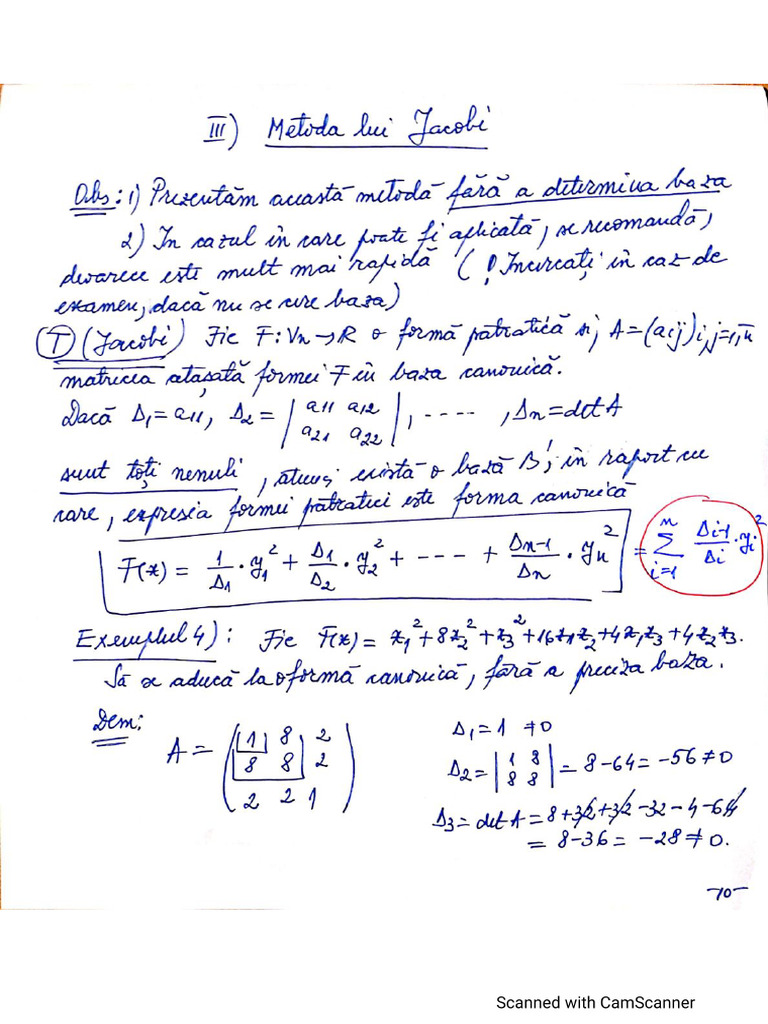 III) Metoda lui Jacobi
Obs: 1) Prezentăm această metodă fără a determina baza
2) In cazul în care poate fi aplicată, se recomandă,
deoarece este mult mai rapidă (! Incercați în caz de
examen, dacă nu se cere baza)
(T) (Jacobi) Fie F: Vn → R o formă pătratică și A = (aij)i,j=1,n̅
matricea atașată formei F în baza canonică.
Dacă Δ1 = a11, Δ2 = | a11 a12 |, ---- , Δn = det A
| a21 a22 |
sunt toți nenuli, atunci există o bază B', în raport cu
care, expresia formei pătratici este forma canonică
F(x) = 1/Δ1 · y1² + Δ1/Δ2 · y2² + ---- + Δn-1/Δn · yn² = Σ i=1 n Δi-1/Δi · yi²
Exemplul 4): Fie F(x) = x1² + 8x2² + x3² + 16x1x2 + 4x1x3 + 4x2x3.
Să se aducă la o formă canonică, fără a preciza baza.
Dem:
A = ( 1 8 2
8 8 2
2 2 1 )
Δ1 = 1 ≠ 0
Δ2 = | 1 8 | = 8 - 64 = -56 ≠ 0
| 8 8 |
Δ3 = det A = 8 + 32 + 32 - 32 - 4 - 64
= 8 - 36 = -28 ≠ 0.
-10-
Scanned with CamScanner